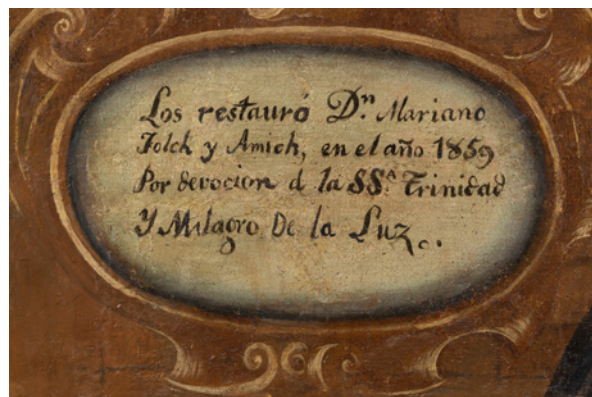 Los restauró Dⁿ. Mariano
Folch y Amich, en el año 1859
Por devocion d la SSᴬ. Trinidad
Y Milagro De la Luz.